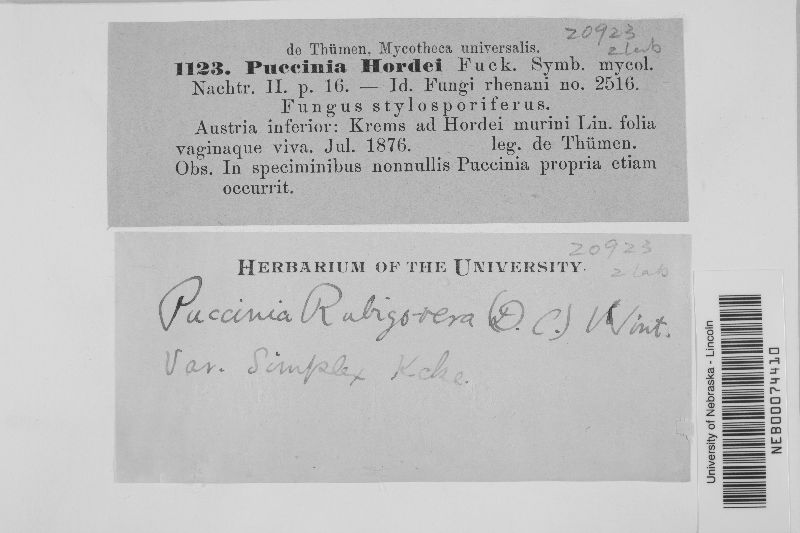 20923
2 lab
de Thümen, Mycotheca universalis.
1123. Puccinia Hordei Fuck. Symb. mycol.
Nachtr. II. p. 16. — Id. Fungi rhenani no. 2516.
Fungus stylosporiferus.
Austria inferior: Krems ad Hordei murini Lin. folia
vaginaque viva. Jul. 1876. leg. de Thümen.
Obs. In speciminibus nonnullis Puccinia propria etiam
occurrit.
20923
2 lab
HERBARIUM OF THE UNIVERSITY.
Puccinia Rubigo-vera (D. C.) Wint.
Var. Simplex Kcke.
University of Nebraska - Lincoln
NEB00074410